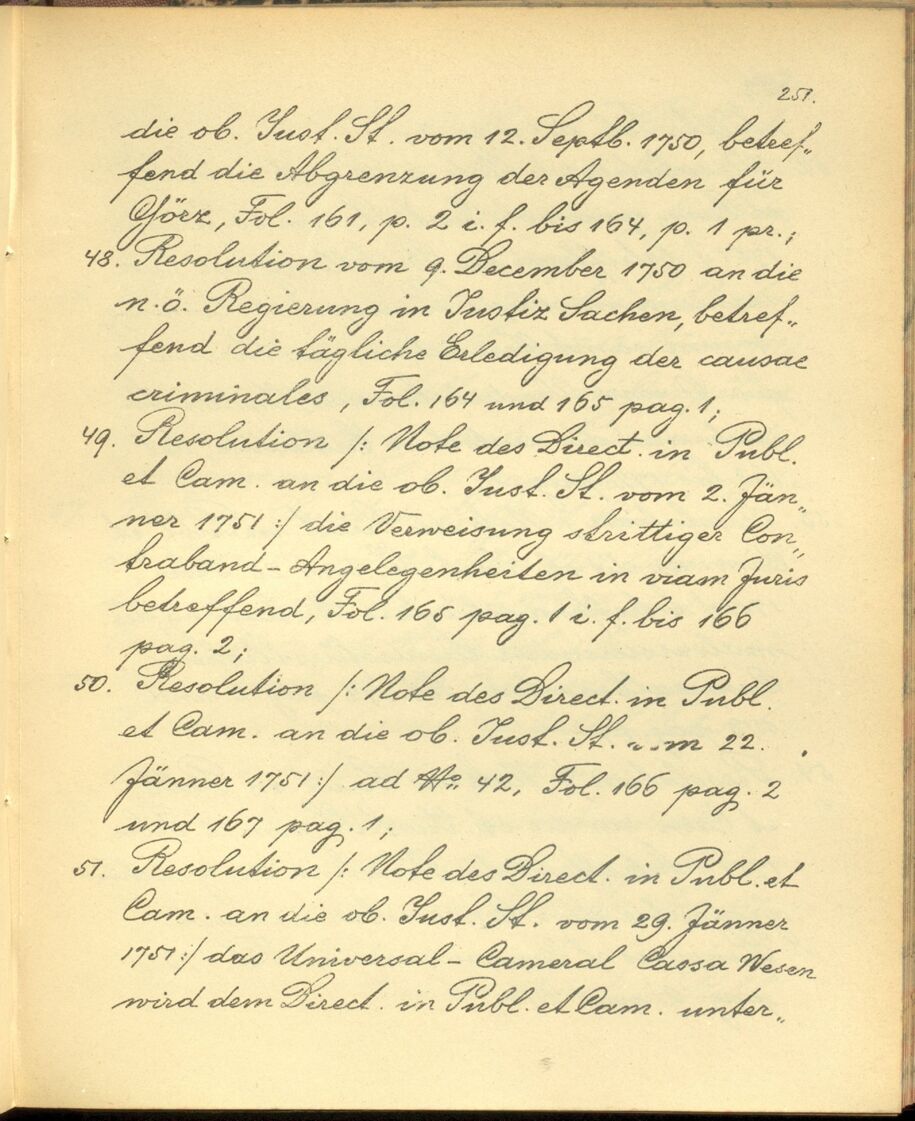 251.
die ob. Just. St. vom 12. Septb. 1750, betref„
fend die Abgrenzung der Agenden für
Görz, Fol. 161, p. 2 i. f. bis 164, p. 1 pr.;
48. Resolution vom 9. December 1750 an die
n. ö. Regierung in Justiz Sachen, betref„
fend die tägliche Erledigung der causae
criminales, Fol. 164 und 165 pag. 1;
49. Resolution /: Note des Direct. in Publ.
et Cam. an die ob. Just. St. vom 2. Jän„
ner 1751 :/ die Verweisung strittiger Con„
traband - Angelegenheiten in viam Juris
betreffend, Fol. 165 pag. 1 i. f. bis 166
pag. 2;
50. Resolution /: Note des Direct. in Publ.
et Cam. an die ob. Just. St. vom 22.
Jänner 1751 :/ ad No 42, Fol. 166 pag. 2
und 167 pag. 1;
51. Resolution /: Note des Direct. in Publ. et
Cam. an die ob. Just. St. vom 29. Jänner
1751 :/ das Universal - Cameral Cassa Wesen
wird dem Direct. in Publ. et Cam. unter„